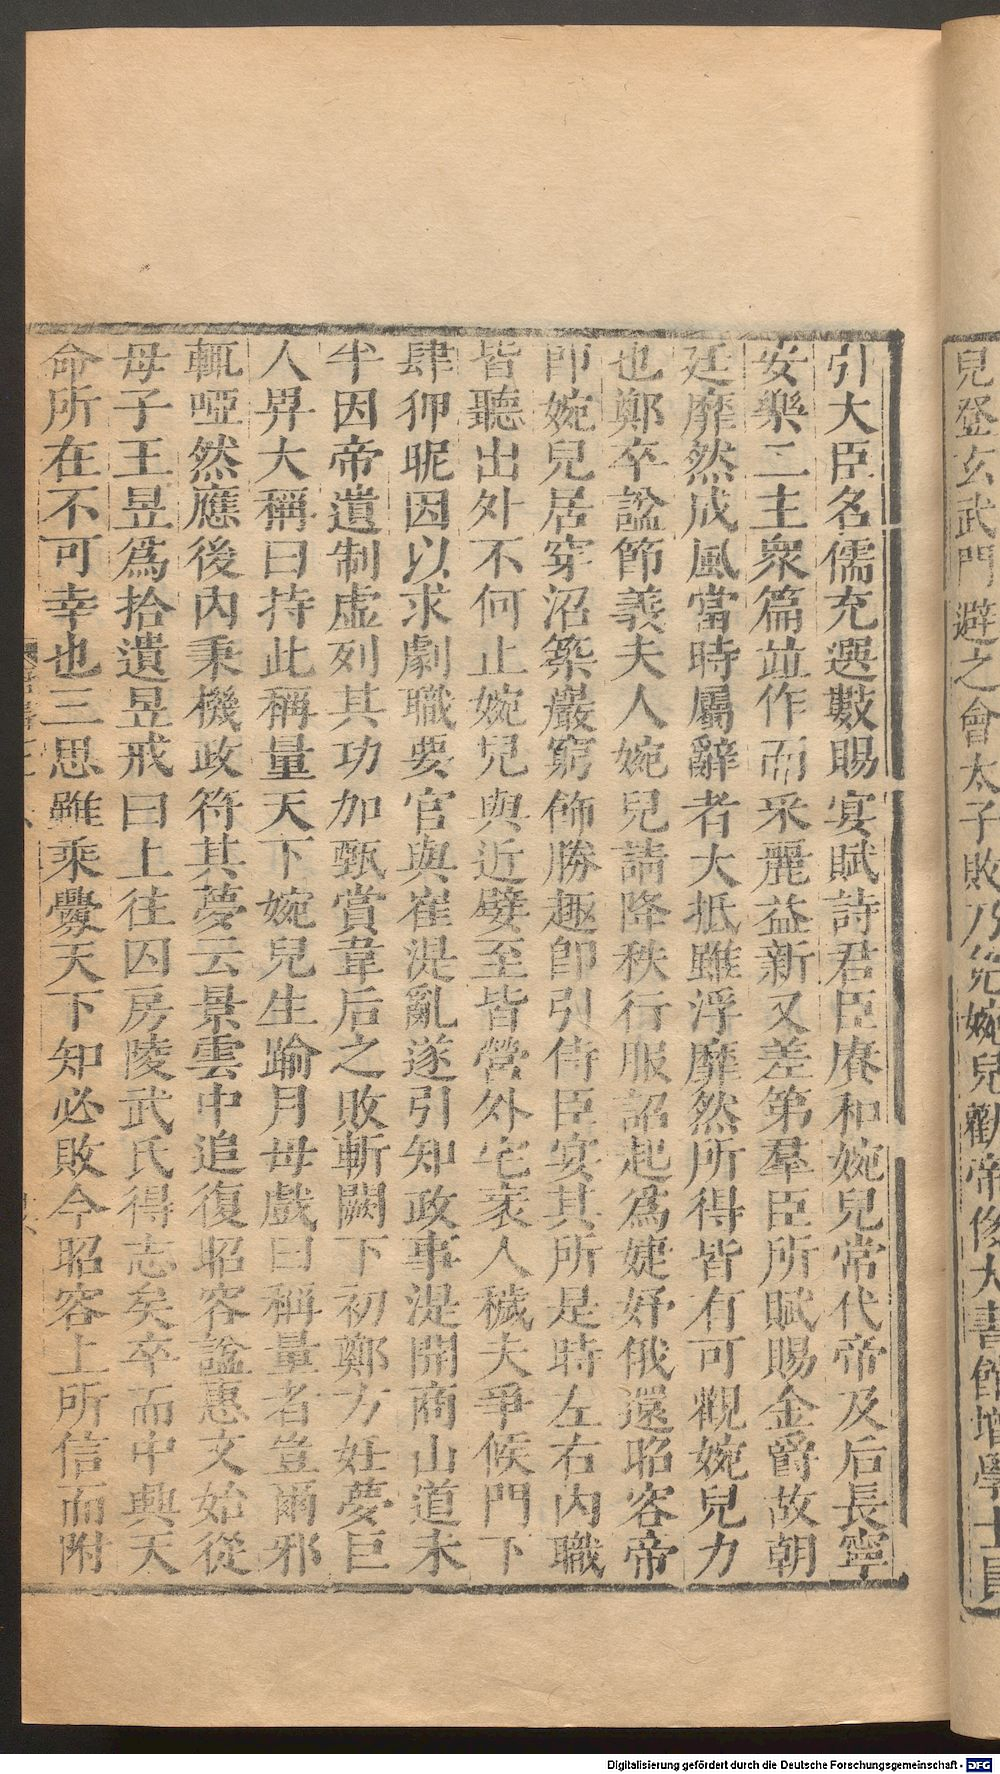 兒登玄武門避之會太子敗乃免婉兒勸帝侈大書館增學士員
引大臣名儒充選數賜宴賦詩君臣賡和婉兒常代帝及后長寧
安樂二主衆篇竝作而采麗益新又差第羣臣所賦賜金爵故朝
廷靡然成風當時屬辭者大抵雖浮靡然所得皆有可觀婉兒力
也鄭卒諡節義夫人婉兒請降秩行服詔起爲婕妤俄還昭容帝
即婉兒居穿沼築巖窮飾勝趣即引侍臣宴其所是時左右內職
皆聽出外不何止婉兒與近嬖至皆營外宅衺人穢夫爭候門下
肆狎昵因以求劇職要官與崔湜亂遂引知政事湜開商山道未
半因帝遺制虛列其功加甄賞韋后之敗斬闕下初鄭方妊夢巨
人畀大稱曰持此稱量天下婉兒生踰月母戲曰稱量者豈爾邪
輒啞然應後內秉機政符其夢云景雲中追復昭容諡惠文始從
母子王昱爲拾遺昱戒曰上往囚房陵武氏得志矣卒而中興天
命所在不可幸也三思雖乘釁天下知必敗今昭容上所信而附
Digitalisierung gefördert durch die Deutsche Forschungsgemeinschaft - DFG